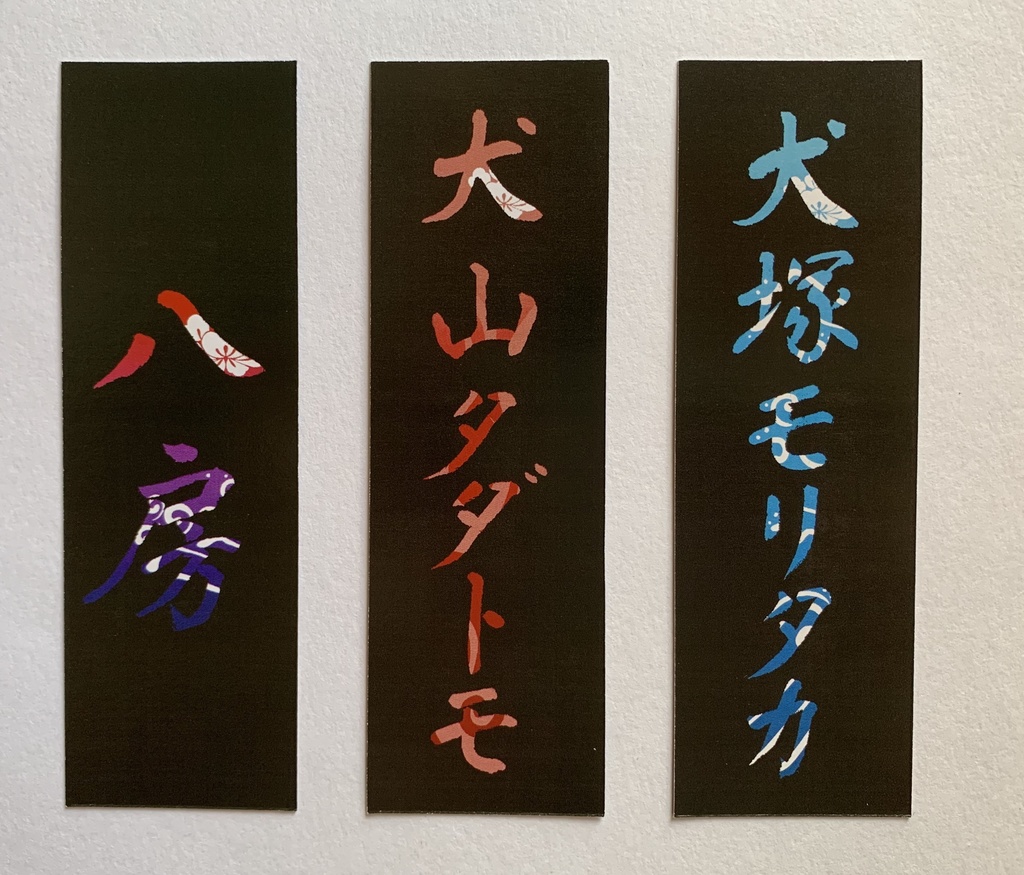 犬塚モリタカ
犬山タダトモ
八房